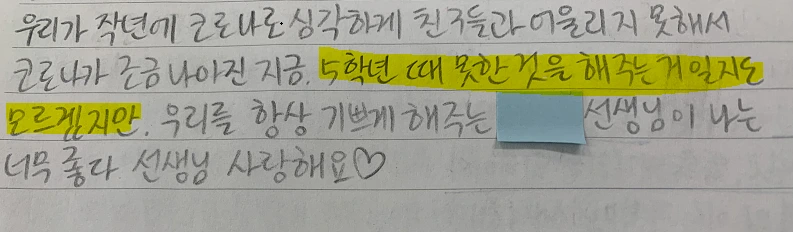 우리가 작년에 코로나로 심각하게 친구들과 어울리지 못해서
코로나가 조금 나아진 지금. 5학년 때 못한 것을 해주는 거 일지도
모르겠지만. 우리를 항상 기쁘게 해주는 선생님이 나는
너무 좋다 선생님 사랑해요♡